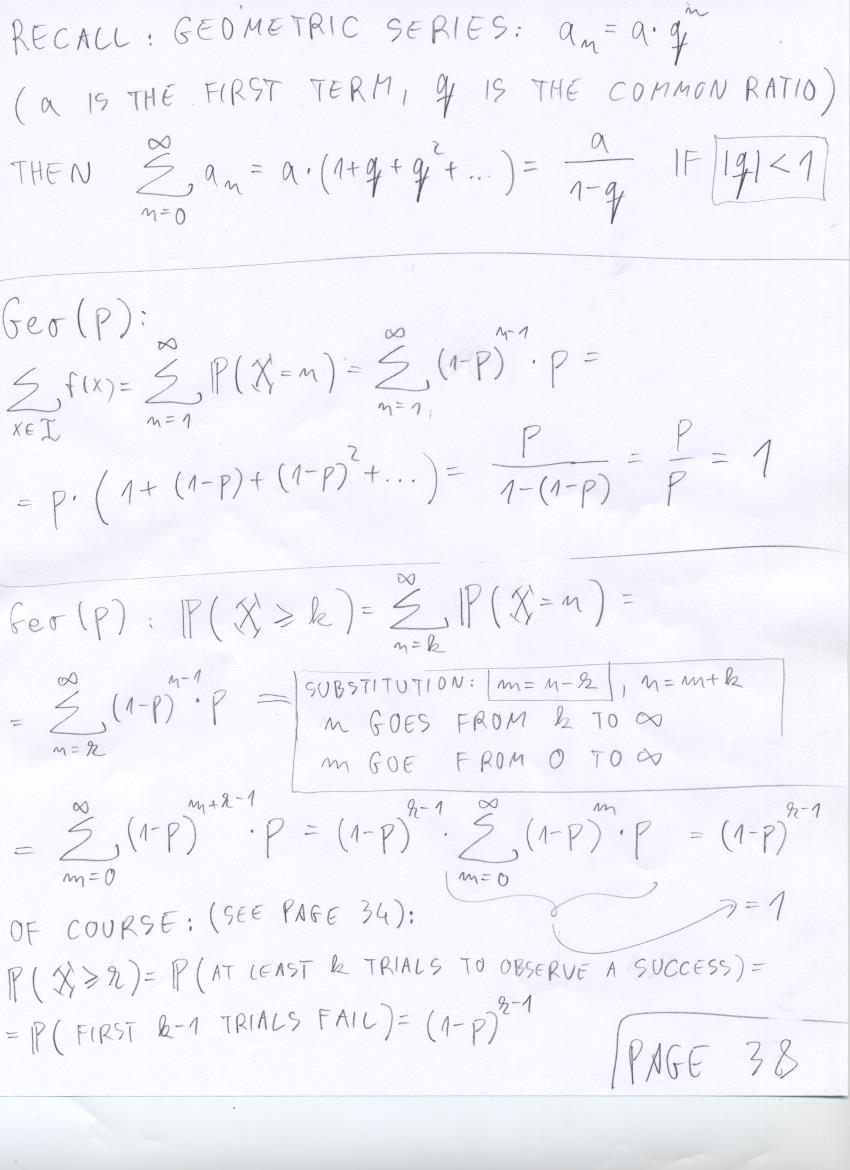 RECALL: GEOMETRIC SERIES: aₙ = a · qⁿ
(a IS THE FIRST TERM, q IS THE COMMON RATIO)
THEN ∑_{n=0}^{∞} aₙ = a · (1+q+q²+...) = a/(1-q) IF |q|<1
Geo(p):
∑_{x∈I} f(x) = ∑_{n=1}^{∞} ℙ(X=n) = ∑_{n=1}^{∞} (1-p)^{n-1} · p =
= p · (1+(1-p)+(1-p)²+...) = p/(1-(1-p)) = p/p = 1
Geo(p): ℙ(X≥k) = ∑_{n=k}^{∞} ℙ(X=n) =
= ∑_{n=k}^{∞} (1-p)^{n-1} · p =
SUBSTITUTION: m=n-k, n=m+k
n GOES FROM k TO ∞
m GOE FROM 0 TO ∞
= ∑_{m=0}^{∞} (1-p)^{m+k-1} · p = (1-p)^{k-1} · ∑_{m=0}^{∞} (1-p)^m · p = (1-p)^{k-1}
=1
OF COURSE: (SEE PAGE 34):
ℙ(X≥k) = ℙ(AT LEAST k TRIALS TO OBSERVE A SUCCESS) =
= ℙ(FIRST k-1 TRIALS FAIL) = (1-p)^{k-1}
PAGE 38